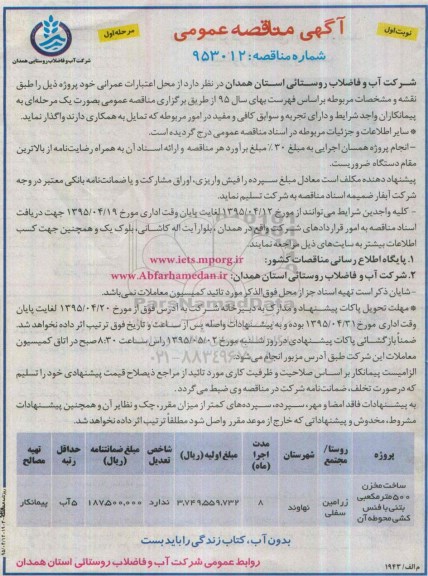 نوبت اول
آگهی مناقصه عمومی
مرحله اول
شماره مناقصه: ۹۵۳۰۱۲
شرکت آب و فاضلاب روستایی همدان
شرکت آب و فاضلاب روستائی استان همدان در نظر دارد از محل اعتبارات عمرانی خود پروژه ذیل را طبق
نقشه و مشخصات مربوطه براساس فهرست بهای سال ۹۵ از طریق برگزاری مناقصه عمومی بصورت یک مرحله‌ای به
پیمانکاران واجد شرایط و دارای تجربه و سوابق کافی و مفید در امور مربوطه که تمایل به همکاری دارند واگذار نماید.
* سایر اطلاعات و جزئیات مربوطه در اسناد مناقصه عمومی درج گردیده است.
- انجام پروژه همسان اجرایی به مبلغ ۳۰٪ مبلغ برآورد هر مناقصه و ارائه اسناد آن به همراه رضایت‌نامه از بالاترین
مقام دستگاه ضروریست.
پیشنهاد دهنده مکلف است معادل مبلغ سپرده را فیش واریزی، اوراق مشارکت و یا ضمانت‌نامه بانکی معتبر در وجه
شرکت آبفار ضمیمه اسناد مناقصه به شرکت تسلیم نماید.
- کلیه واجدین شرایط می‌توانند از مورخ ۱۳۹۵/۰۴/۱۳ لغایت پایان وقت اداری مورخ ۱۳۹۵/۰۴/۱۹ جهت دریافت
اسناد مناقصه به امور قراردادهای شرکت واقع در همدان، بلوار آیت اله کاشانی، بلوک یک و همچنین جهت کسب
اطلاعات بیشتر به سایت‌های ذیل مراجعه نمایند.
۱. پایگاه اطلاع رسانی مناقصات کشور: www.iets.mporg.ir
۲. شرکت آب و فاضلاب روستائی استان همدان: www.Abfarhamedan.ir
- شایان ذکر است تهیه اسناد جز از محل فوق الذکر مورد تائید کمیسیون معاملات نمی‌باشد.
* مهلت تحویل پاکات پیشنهاد و مدارک به دبیرخانه شرکت به آدرس فوق از مورخ ۱۳۹۵/۰۴/۲۰ لغایت پایان
وقت اداری مورخ ۱۳۹۵/۰۴/۳۱ بوده و به پیشنهادات واصله پس از ساعت و تاریخ فوق ترتیب اثر داده نخواهد شد.
ضمناً بازگشائی پاکات پیشنهادی در روز شنبه مورخ ۱۳۹۵/۰۵/۰۲ راس ساعت ۸:۳۰ صبح در اتاق کمیسیون
معاملات این شرکت طبق آدرس مزبور انجام می‌شود.
الزامیست پیمانکار بر اساس صلاحیت و ظرفیت کاری مورد تائید از مراجع ذیصلاح قیمت پیشنهادی خود را تسلیم
کند که در صورت تخلف، ضمانت‌نامه شرکت در مناقصه وی ضبط می‌گردد.
به پیشنهادات فاقد امضا و مهر، سپرده، سپرده‌های کمتر از میزان مقرر، چک و نظایر آن و همچنین پیشنهادات
مشروط، مخدوش و پیشنهاداتی که خارج از موعد مقرر واصل شود مطلقاً ترتیب اثر داده نخواهد شد.
پروژه | روستا/مجتمع | شهرستان | مدت اجرا (ماه) | مبلغ اولیه (ریال) | شاخص تعدیل | مبلغ ضمانتنامه (ریال) | حداقل رتبه | تهیه مصالح
ساخت مخزن ۵۰۰ متر مکعبی بتنی با فنس کشی محوطه آن | زرامین سفلی | نهاوند | ۸ | ۳,۷۴۹,۵۵۹,۷۳۲ | ندارد | ۱۸۷,۵۰۰,۰۰۰ | ۵ آب | پیمانکار
بدون آب، کتاب زندگی را باید بست
روابط عمومی شرکت آب و فاضلاب روستائی استان همدان
م الف / ۱۹۴۳